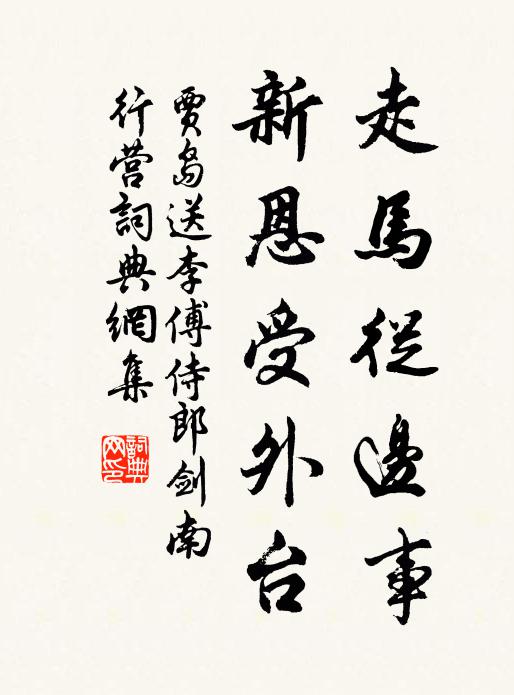 走馬從邊事
新恩受外台
賈島送李傅侍郎劍南
行營詞典網集
詞典网印